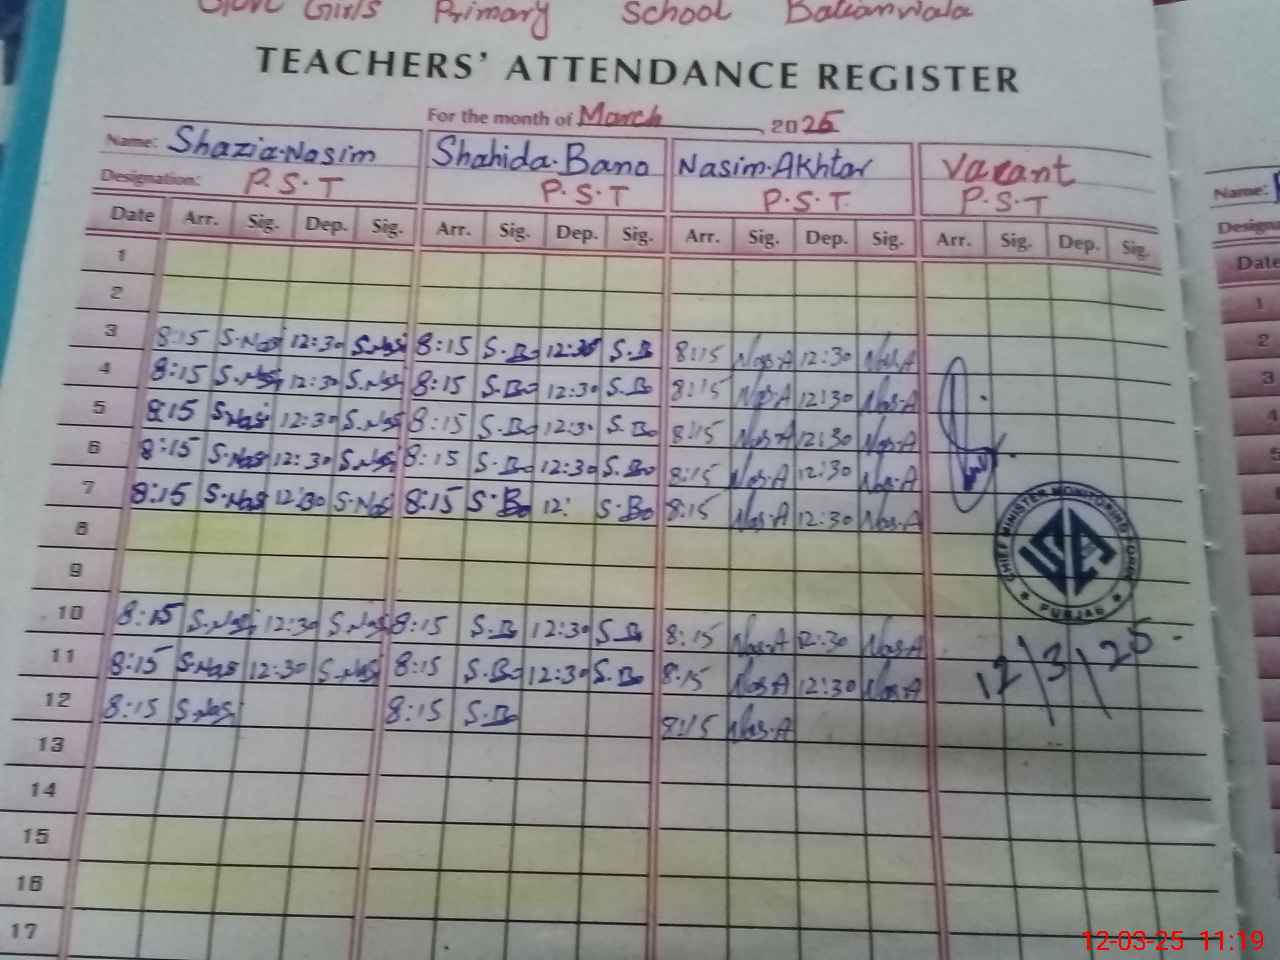 Govt Girls Primary School Balianwala
TEACHERS' ATTENDANCE REGISTER
For the month of March 2025
Name: Shazia.Nasim Shahida.Bano Nasim.Akhtar Vacant
Designation: P.S.T P.S.T P.S.T. P.S.T
Date Arr. Sig. Dep. Sig. Arr. Sig. Dep. Sig. Arr. Sig. Dep. Sig. Arr. Sig. Dep. Sig.
1
2
3 8:15 S.Nasi 12:30 S.Nasi 8:15 S.Bo 12:30 S.B 8:15 Nas.A 12:30 Nas.A
4 8:15 S.Nasi 12:30 S.Nasi 8:15 S.Bo 12:30 S.Bo 8:15 Nas.A 12:30 Nas.A
5 8:15 S.Nasi 12:30 S.Nasi 8:15 S.Bo 12:30 S.Bo 8:15 Nas.A 12:30 Nas.A
6 8:15 S.Nasi 12:30 S.Nasi 8:15 S.Bo 12:30 S.Bo 8:15 Nas.A 12:30 Nas.A
7 8:15 S.Nasi 12:30 S.Nasi 8:15 S.Bo 12: S.Bo 8:15 Nas.A 12:30 Nas.A
8
9
10 8:15 S.Nasi 12:30 S.Nasi 8:15 S.B 12:30 S.B 8:15 Nas.A 12:30 Nas.A
11 8:15 S.Nasi 12:30 S.Nasi 8:15 S.Bo 12:30 S.Bo 8:15 Nas.A 12:30 Nas.A
12 8:15 S.Nasi 8:15 S.Bo 8:15 Nas.A
13
14
15
16
17
CHIEF MINISTER MONITORING FORCE
PUNJAB
12/3/25
Name:
Date
1
2
3
4
5
12-03-25 11:19